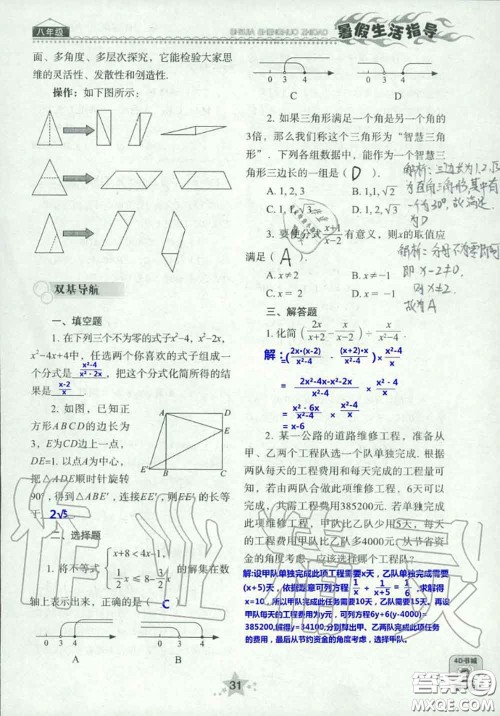 八年级
暑假生活指导
面、多角度、多层次探究，它能检验大家思
维的灵活性、发散性和创造性.
操作：如下图所示：
双基导航
一、填空题
1. 在下列三个不为零的式子x²－4，x²－2x，
x²－4x+4中，任选两个你喜欢的式子组成一
个分式是 x²-4/x²-2x ，把这个分式化简所得的结
果是 x-2/x .
2. 如图，已知正
方形ABCD的边长为
3，E为CD边上一点，
DE=1. 以点A为中心，
把△ADE顺时针旋转
90°，得到△ABE′，连接EE′，则EE′的长等
于 2√5
A D
E
E′ B C
二、选择题
1. 将不等式{x+8<4x-1, 1/2x≤8-3/2x 的解集在数
轴上表示出来，正确的是( C )
0 3 4
A
0 3 4
B
0 3 4
C
0 3 4
D
2. 如果三角形满足一个角是另一个角的
3倍，那么我们称这个三角形为“智慧三角
形”. 下列各组数据中，能作为一个智慧三
角形三边长的一组是( D )
A. 1, 2, 3 B. 1,1,√2
C. 1,1,√3 D. 1,2,√3
解析：三边长为1,2,√3
为直角三角形，其中有
一个为30°，故满足.
为D
3. 要使分式 x+1/x-2 有意义，则x的取值应
满足( A )
A. x≠2 B. x≠-1
C. x = 2 D. x=-1
即 x-2≠0,
则 x≠2.
故为A
三、解答题
1. 化简(2x/x+2 － x/x-2)÷ x/x²-4
解：=(2x·(x-2)/x²-4 - (x+2)·x/x²-4)·x²-4/x
= 2x²-4x-x²-2x/x²-4 × x²-4/x
= x²-6x/x²-4 × x²-4/x
= x-6
2. 某一公路的道路维修工程，准备从甲、
乙两个工程队选一个队单独完成. 根据
两队每天的工程费用和每天完成的工程量可
知，若由两队合做此项维修工程，6天可以
完成，共需工程费用385200元，若单独完成
此项维修工程，甲队比乙队少用5天，每天的
工程费用甲队比乙队多4000元，从节省资
金的角度考虑，应该选择哪个工程队？
解:设甲队单独完成此项工程需要x天，乙队单独完成需要
(x+5)天，依据题意可列方程 1/x + 1/x+5 = 1/6 .求解得
x=10，所以甲队完成工程需要10天，乙队需要15天。再设
甲队每天的工程费用为y元，可列方程6y+6(y-4000)=
385200,候得y=34100.分别算出甲、乙两队完成此项任务
的费用，最后从节约资金的角度考虑，选择甲队。
31